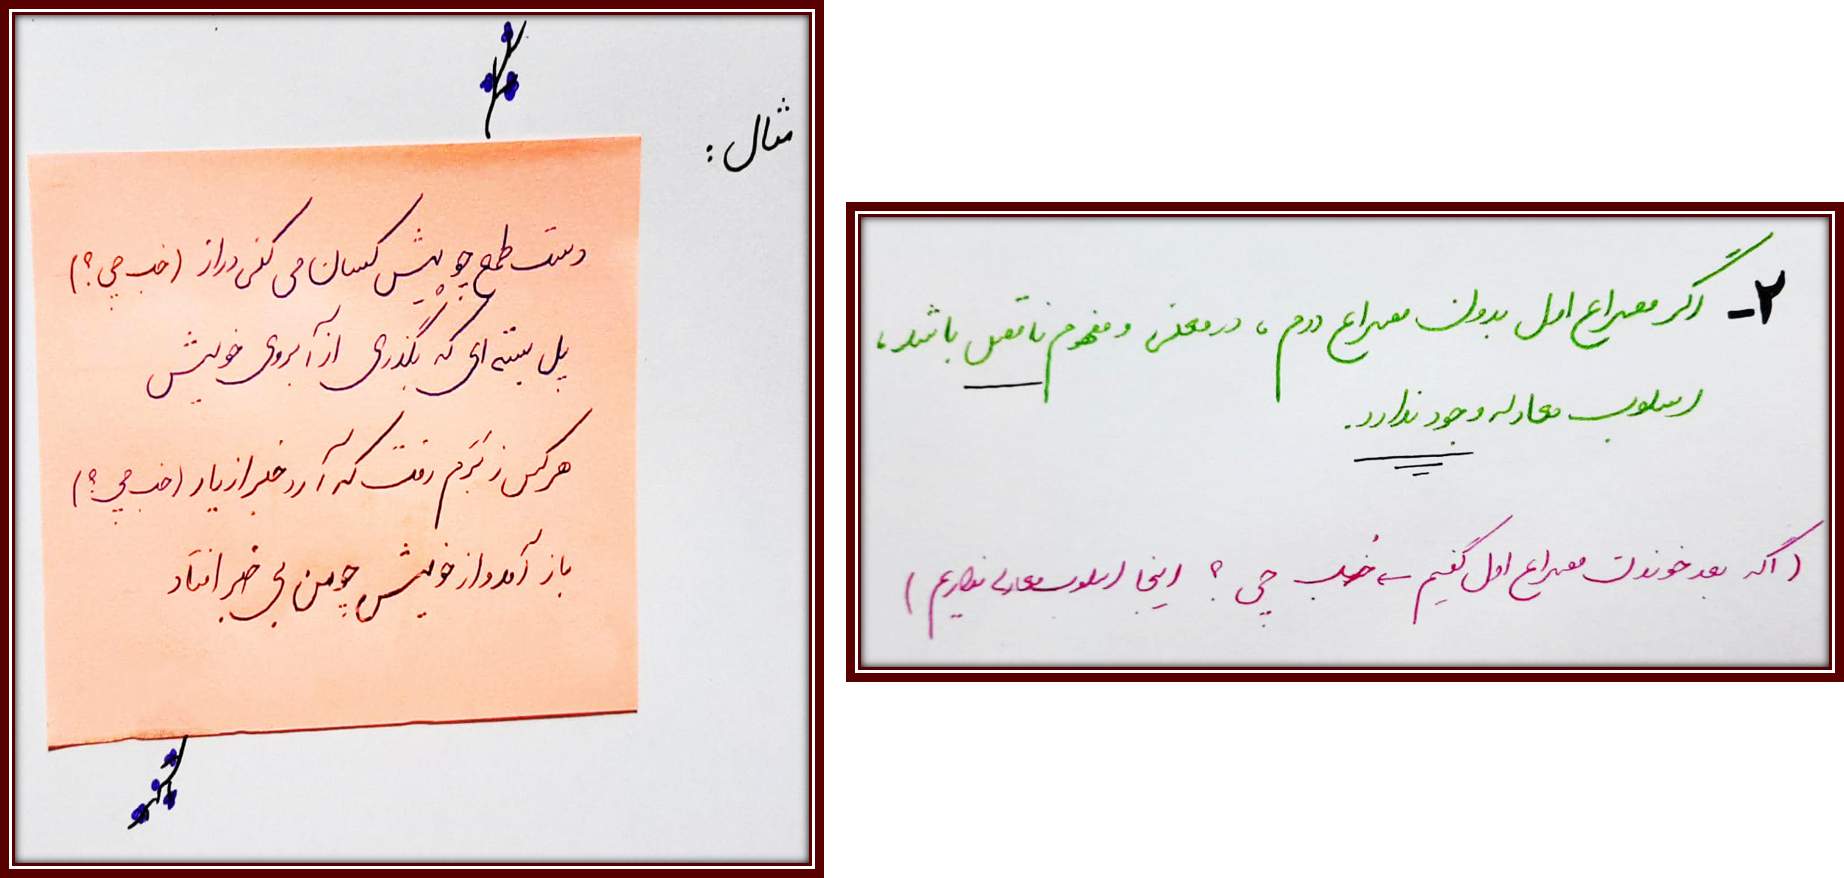 ۲- اگر مصراع اول بدون مصراع دوم ، در معنی و مفهوم ناقص باشد ،
اسلوب معادله وجود ندارد.
(اگه بعد خوندن مصراع اول گفتیم ← خُب چی ؟ اینجا اسلوب معادله نداریم)
مثال :
دست طمع چو پیش کسان می کنی دراز (خب چی؟)
پل بسته ای که بگذری از آبروی خویش
هر کس ز بَرَم رفت که آرد خبر از یار (خب چی؟)
باز آمد و از خویش چو من بی خبر افتاد